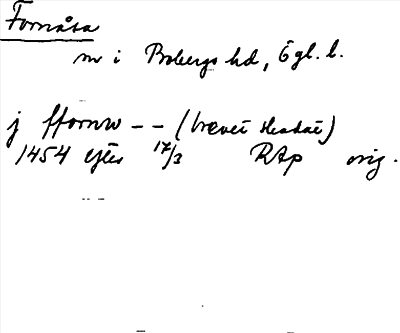 Fornåsa
sn i Bobergs hd, Ögl. l.
j ffornw -- (brevet skadat)
1454 efter 17/3 RAp orig.